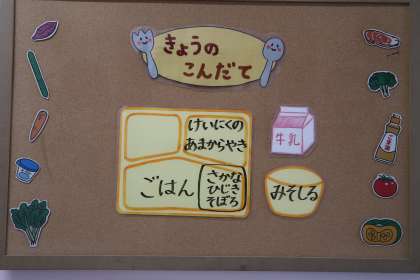 きょうの
こんだて
けいにくの
あまからやき
ごはん
さかな
ひじき
そぼろ
牛乳
みそしる